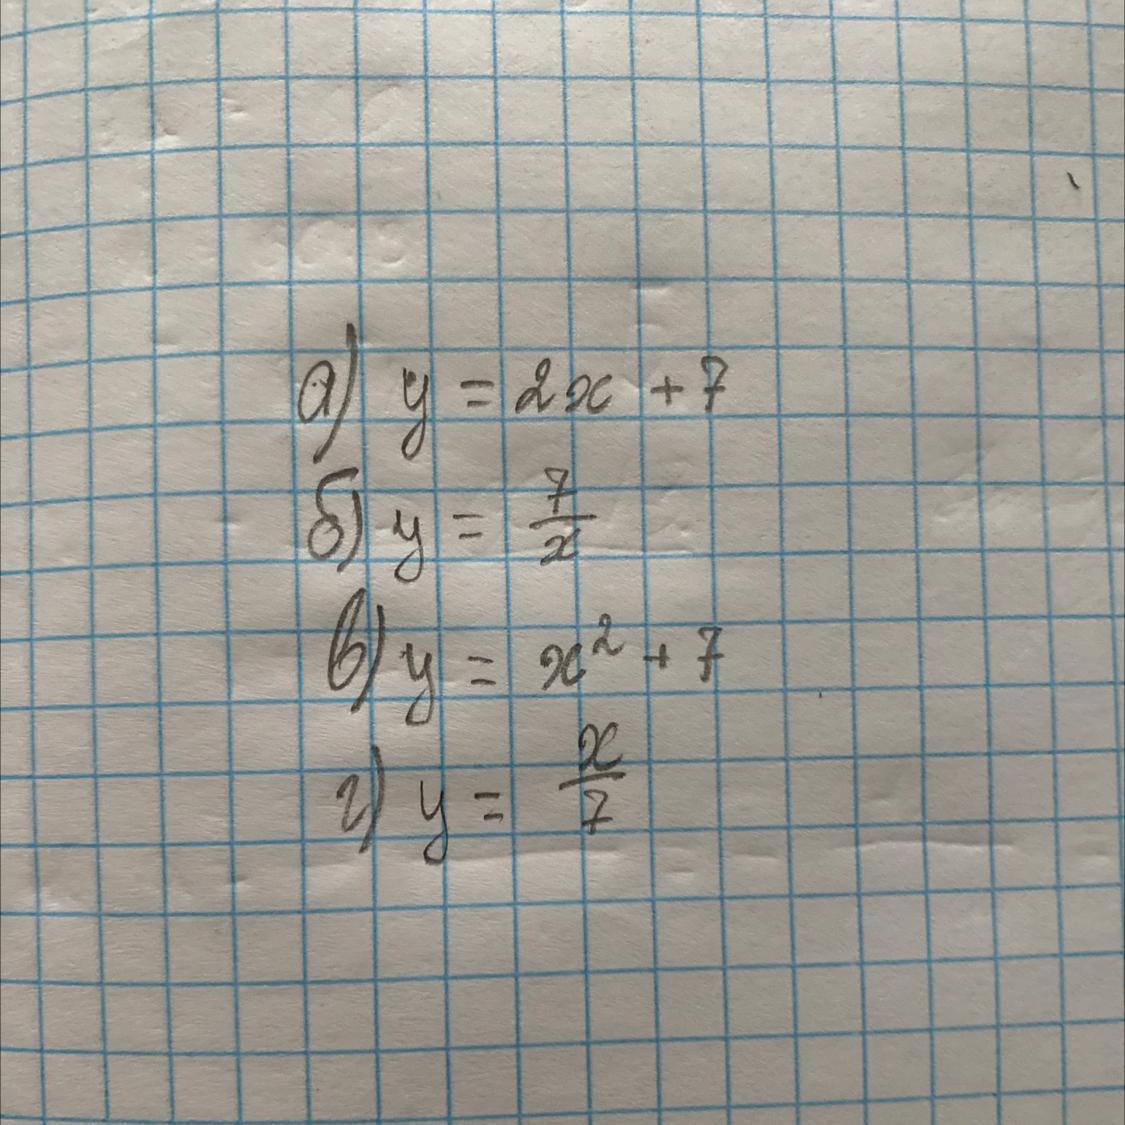 а) y = 2x + 7
б) y = 7/x
в) y = x² + 7
г) y = x/7